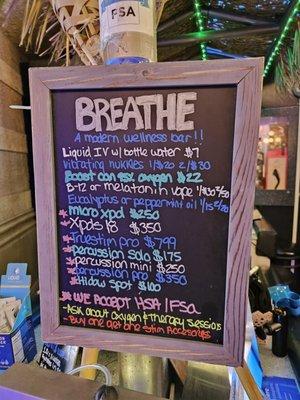 PSA
BREATHE
A modern wellness bar!!
Liquid IV w/ bottle water $7
Vibrating nukkles 1/$20 2/$30
Boost can 95% oxygen $22
B-12 or melatonin vape 1/$30
Eucalyptus or peppermint oil 1/15 2/20
*micro xpd $250
*Xpds 18 $350
*Truestim pro $799
*percussion solo $175
*percussion mini $250
*percussion pro $350
*Hidow spot $100
*WE ACCEPT HSA/FSA
-ASK about oxygen & therapy sessions
-Buy one get one Stim Accesorys